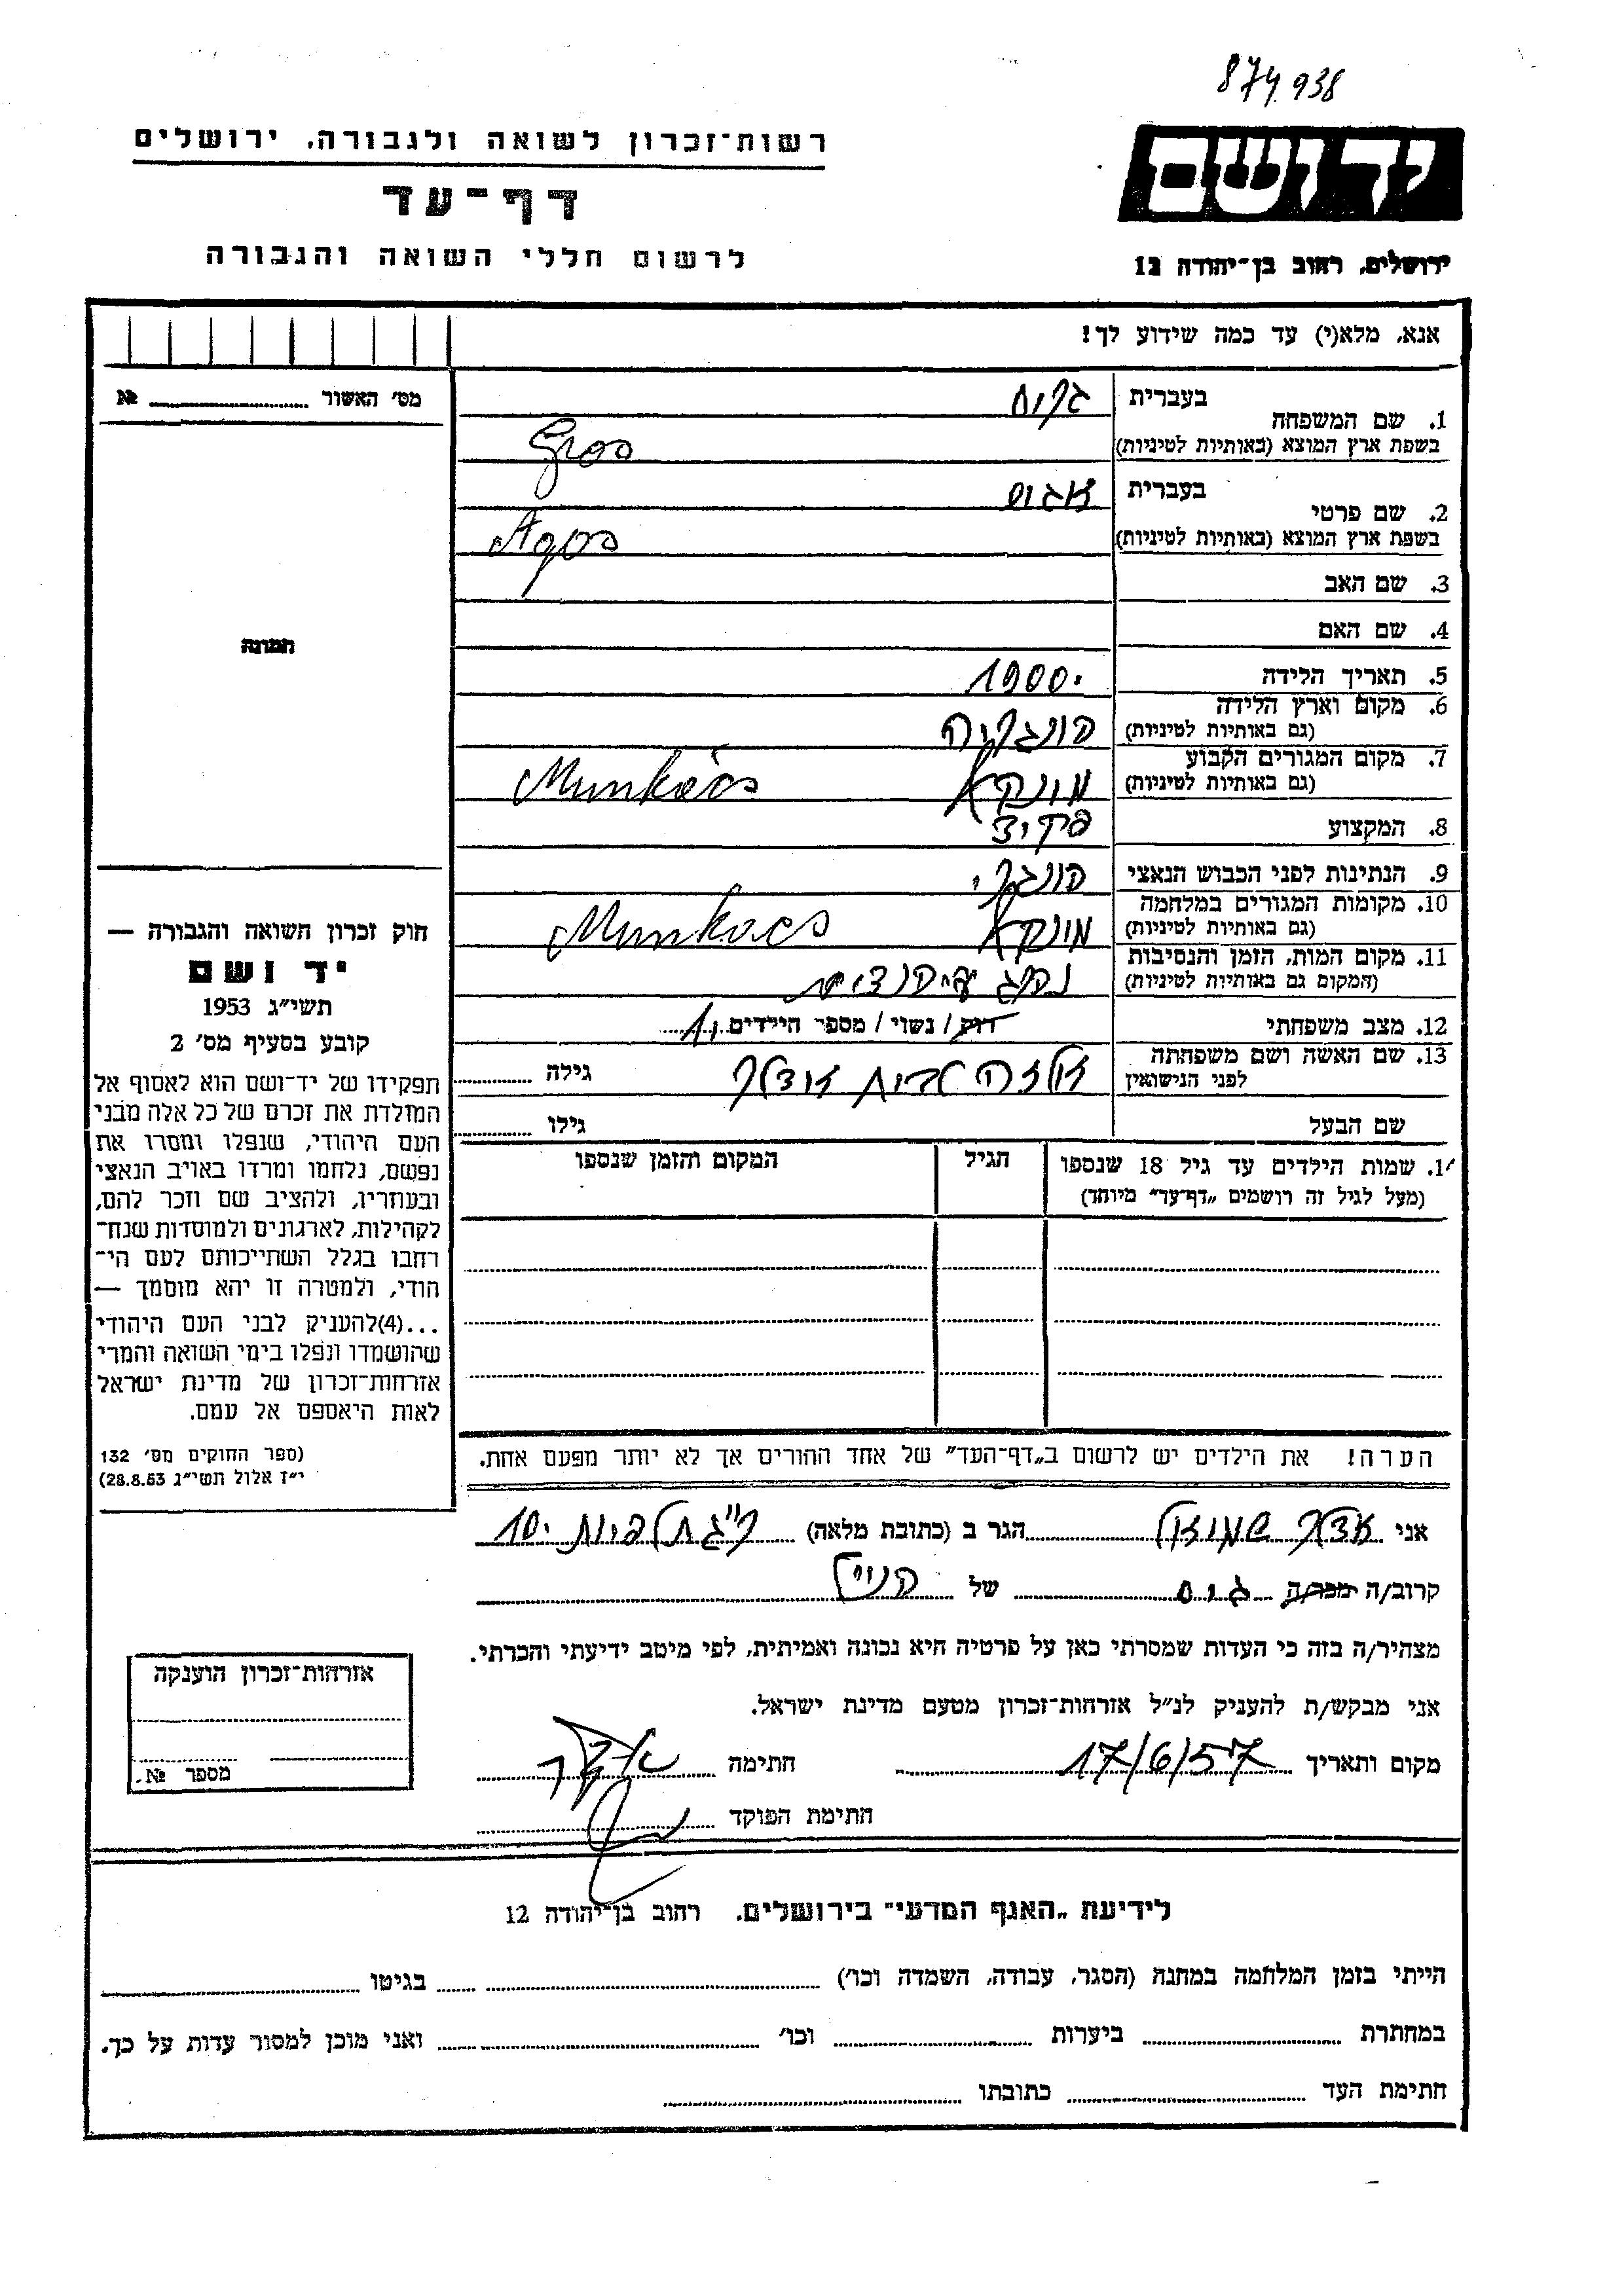 874938
יד ושם
רשות־זכרון לשואה ולגבורה, ירושלים
דף־עד
לרשום חללי השואה והגבורה
ירושלים, רחוב בן־יהודה 12
אנא, מלא(י) עד כמה שידוע לך!
מס׳ האשור № 
1. שם המשפחה בעברית גרוס
בשפת ארץ המוצא (באותיות לטיניות) Gros
2. שם פרטי בעברית אגוס
בשפת ארץ המוצא (באותיות לטיניות) Agos
3. שם האב
4. שם האם
תמונה
5. תאריך הלידה 1900.
6. מקום וארץ הלידה (גם באותיות לטיניות) הונגריה
7. מקום המגורים הקבוע (גם באותיות לטיניות) מונקץ Munkács
8. המקצוע פקיד
9. הנתינות לפני הכבוש הנאצי הונגרי
10. מקומות המגורים במלחמה (גם באותיות לטיניות) Munkacs
11. מקום המות, הזמן והנסיבות (המקום גם באותיות לטיניות) נהרג
12. מצב משפחתי רוק / נשוי / מספר הילדים 1
13. שם האשה ושם משפחתה לפני הנישואין לבית אדלר גילה
שם הבעל גילו
14. שמות הילדים עד גיל 18 שנספו (מעל לגיל זה רושמים „דף־עד״ מיוחד) הגיל המקום והזמן שנספו
חוק זכרון השואה והגבורה —
יד ושם
תשי״ג 1953
קובע בסעיף מס׳ 2
תפקידו של יד־ושם הוא לאסוף אל
המולדת את זכרם של כל אלה מבני
העם היהודי, שנפלו ומסרו את
נפשם, נלחמו ומרדו באויב הנאצי
ובעוזריו, ולהציב שם וזכר להם,
לקהילות, לארגונים ולמוסדות שנח־
רבו בגלל השתייכותם לעם הי־
הודי, ולמטרה זו יהא מוסמך —
...(4)להעניק לבני העם היהודי
שהושמדו ונפלו בימי השואה והמרי
אזרחות־זכרון של מדינת ישראל
לאות היאספם אל עמם.
(ספר החוקים מס׳ 132
י״ז אלול תשי״ג 28.8.53)
הערה! את הילדים יש לרשום ב„דף־העד״ של אחד ההורים אך לא יותר מפעם אחת.
אני אדלר שמואל הגר ב (כתובת מלאה) 10
קרוב/ה מכר/ה גיס של הנ״ל
מצהיר/ה בזה כי העדות שמסרתי כאן על פרטיה היא נכונה ואמיתית, לפי מיטב ידיעתי והכרתי.
אני מבקש/ת להעניק לנ״ל אזרחות־זכרון מטעם מדינת ישראל.
מקום ותאריך 17/6/57 חתימה אדלר
חתימת הפוקד
אזרחות־זכרון הוענקה
מספר №
לידיעת „האגף המדעי״ בירושלים, רחוב בן־יהודה 12
הייתי בזמן המלחמה במחנה (הסגר, עבודה, השמדה וכו׳) בגיטו
במחתרת ביערות וכו׳ ואני מוכן למסור עדות על כך.
חתימת העד כתובתו